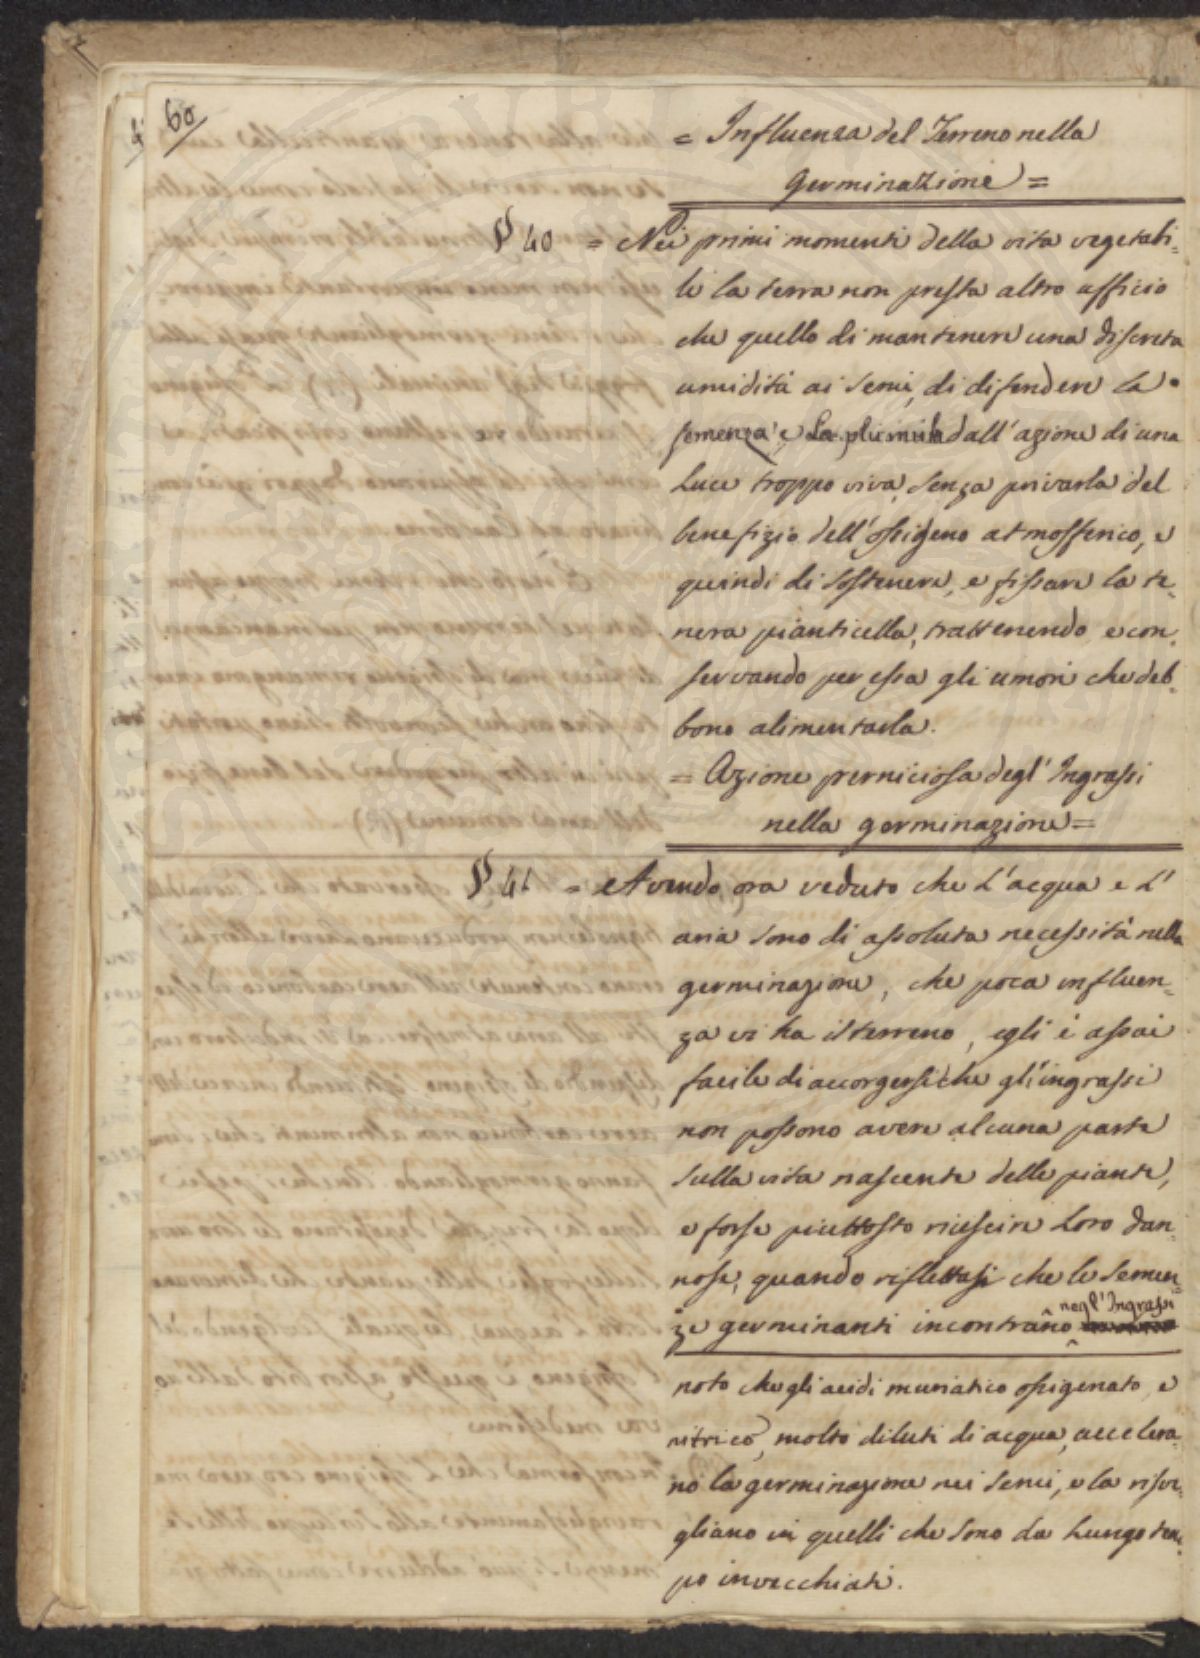 60
= Influenza del Terreno nella
Germinazione =
§ 40 = Nei primi momenti della vita vegetabi-
le la terra non presta altro ufficio
che quello di mantenere una discreta
umidità ai semi, di difendere la
semenza, e la plumula dall'azione di una
luce troppo viva, senza privarla del
benefizio dell'ossigeno atmosferico, e
quindi di sostenere, e fissare la te-
nera pianticella, trattenendo e con-
servando per essa gli umori che deb-
bono alimentarla.
= Azione perniciosa degl'Ingrassi
nella germinazione =
§ 41 = Avendo ora veduto che l'acqua e l'
aria sono di assoluta necessità nella
germinazione, che poca influen-
za vi ha il terreno, egli è assai
facile di accorgersi che gl'ingrassi
non possono avere alcuna parte
sulla vita nascente delle piante,
e forse piuttosto riescire loro dan-
nose, quando riflettasi che le semen-
negl'Ingrassi
ze germinanti incontrano
noto che gli acidi muriatico ossigenato, e
nitrico, molto diluti di acqua, accelera-
no la germinazione nei semi, e la risve-
gliano in quelli che sono da lungo tem-
po invecchiati.